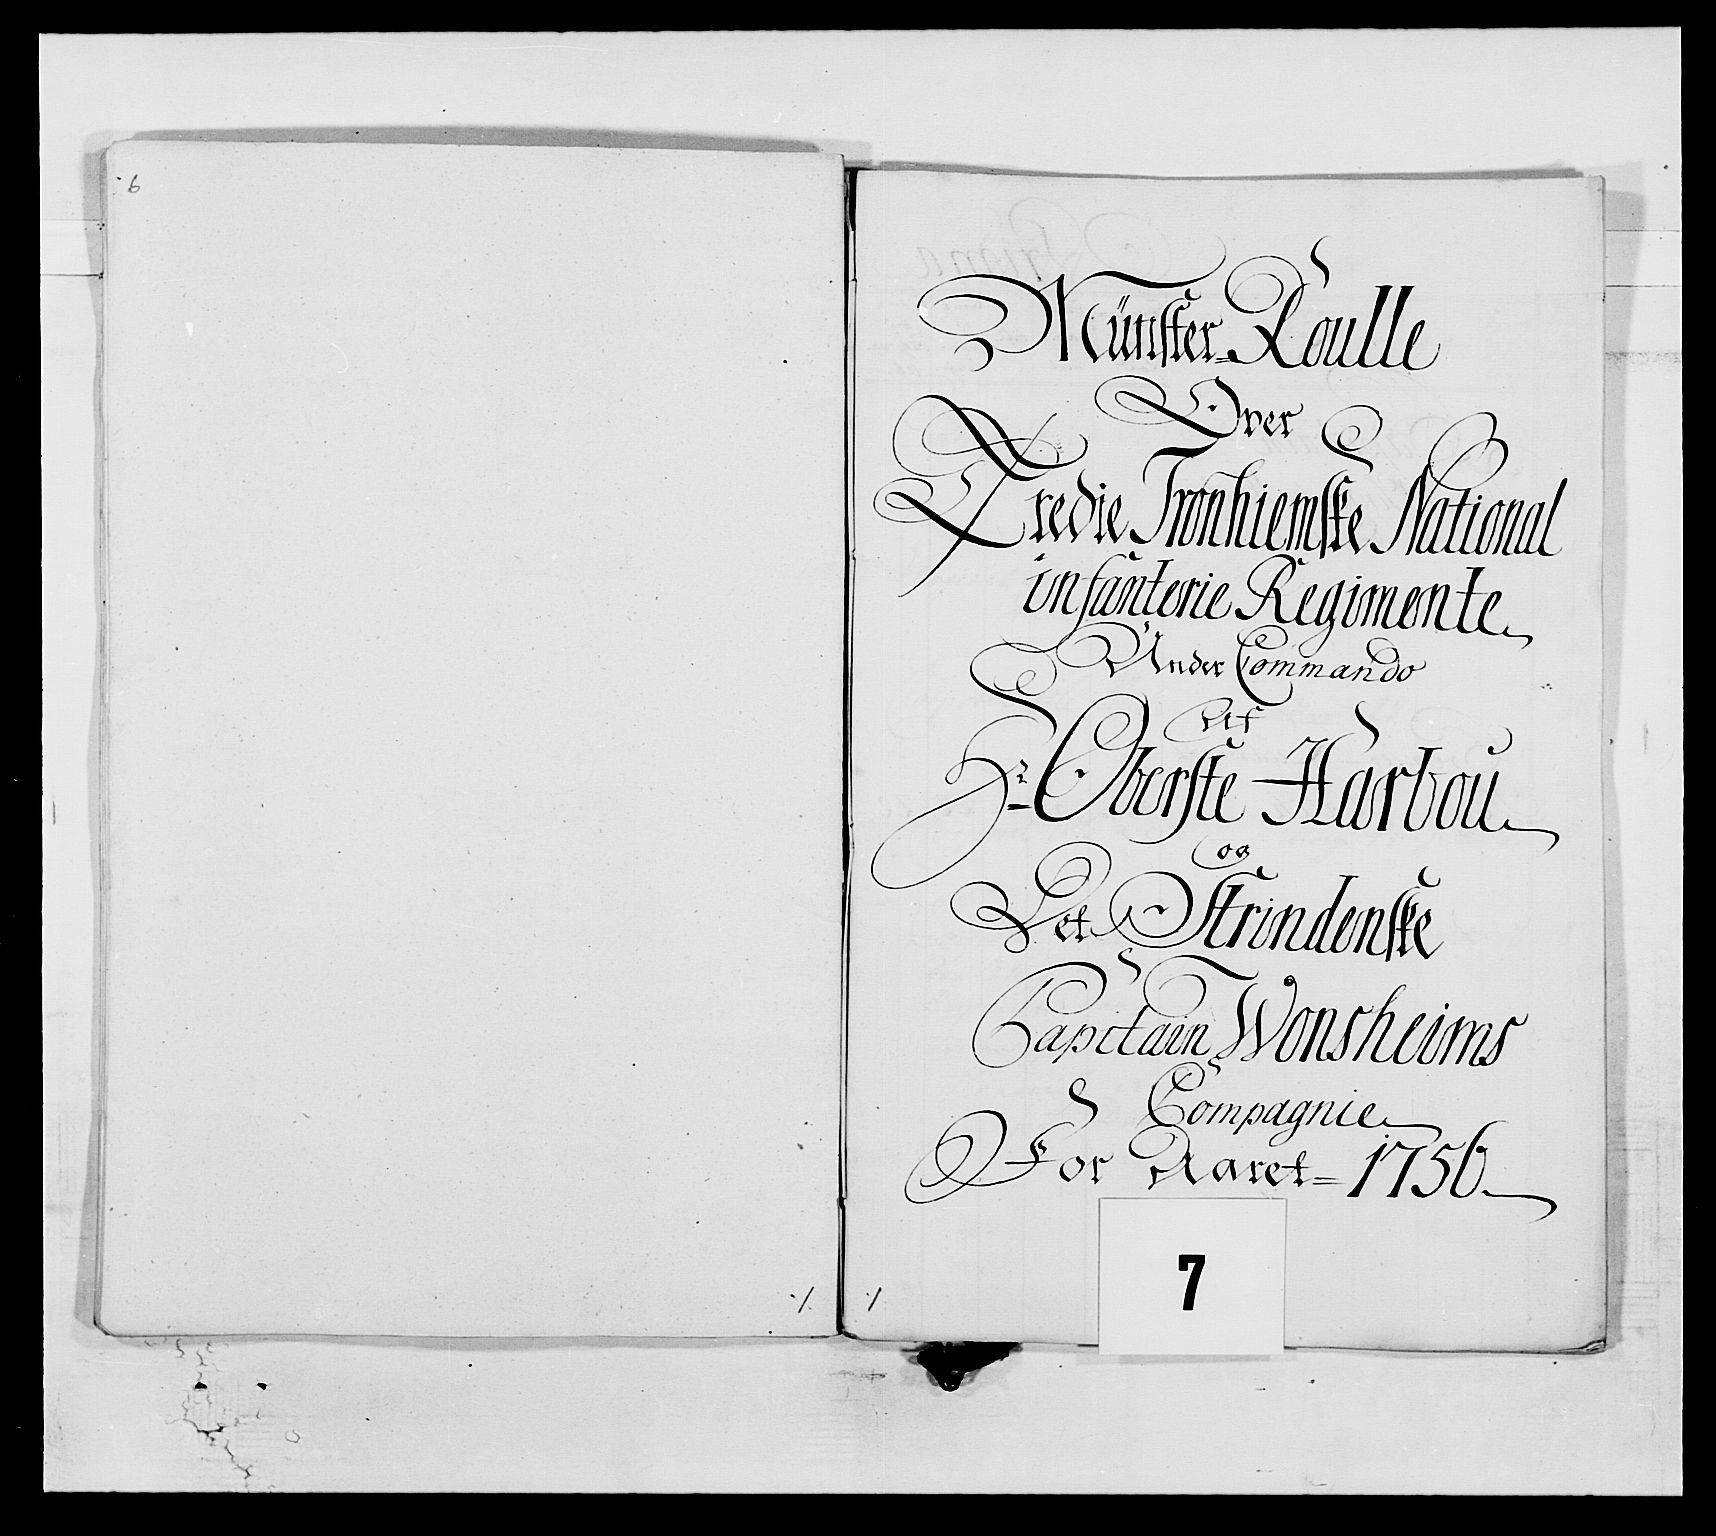 6
Münster-Roulle
Over
Tredie Tronhiemske National
infanterie Regimente
Under Commando
Af
Hr: Oberste Harbou
og
Det Strindenske
Capitain Wonsheims
Compagnie
For Aaret= 1756
7